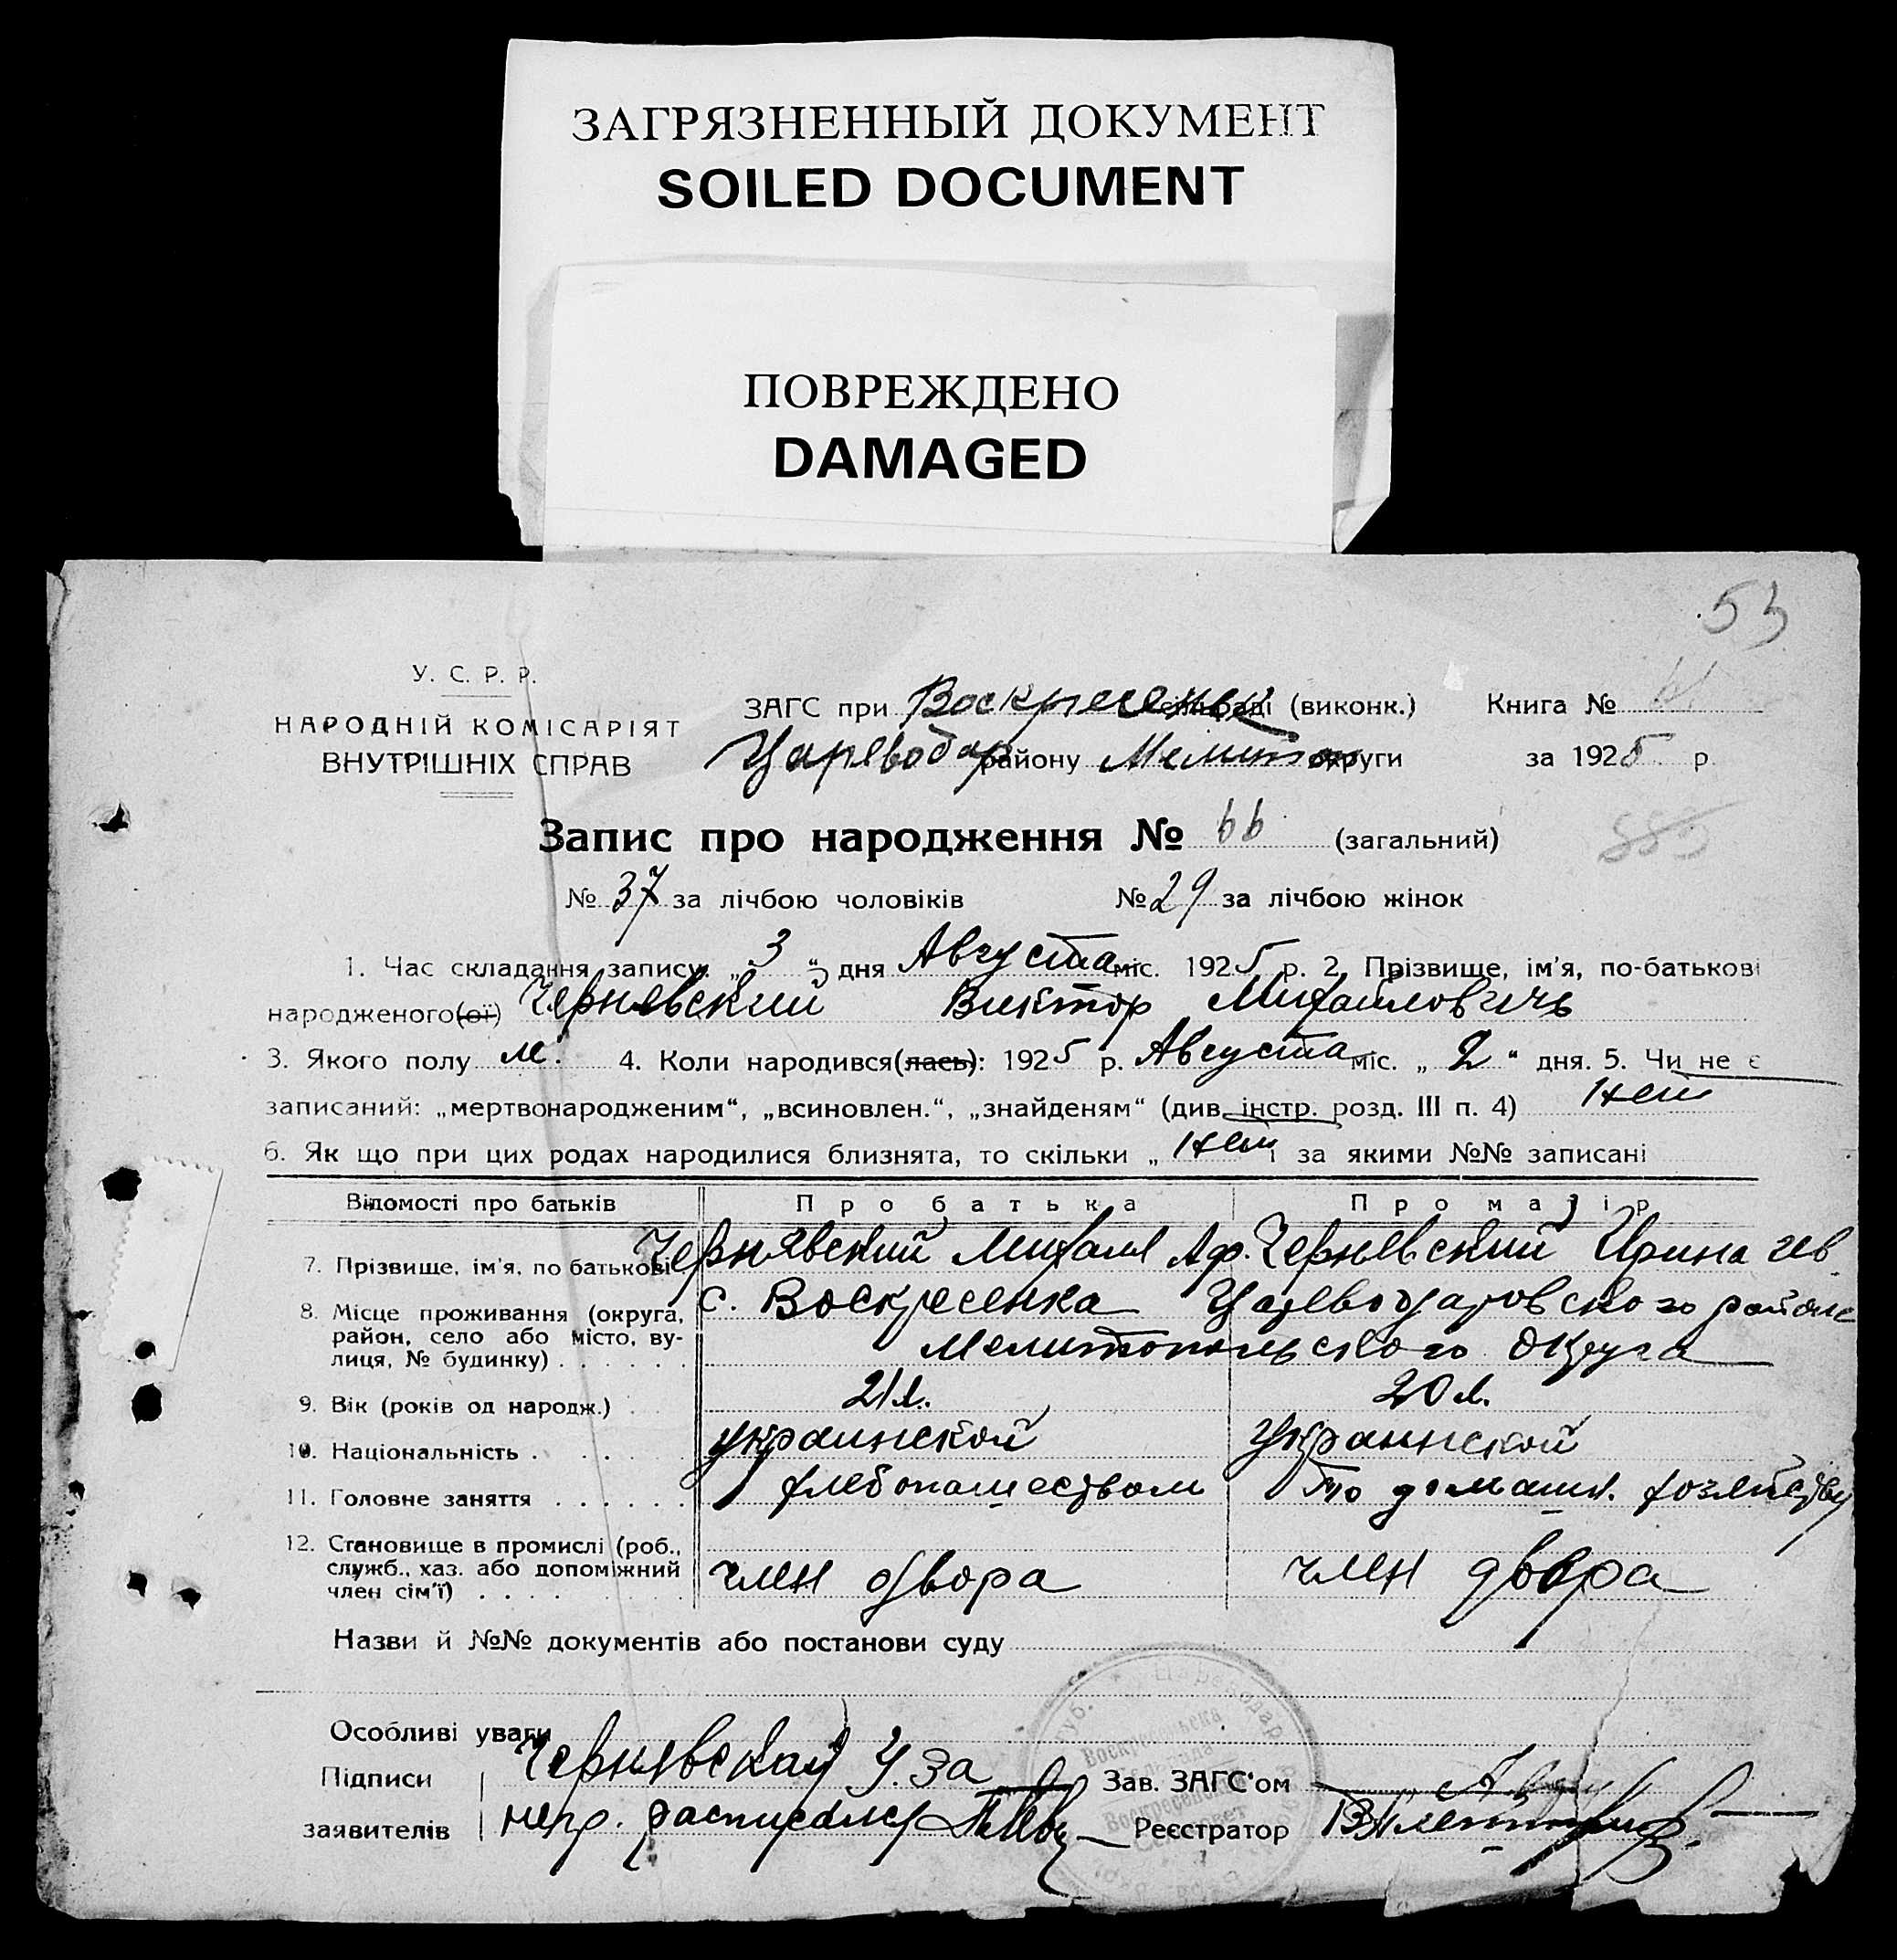 ЗАГРЯЗНЕННЫЙ ДОКУМЕНТ
SOILED DOCUMENT
ПОВРЕЖДЕНО
DAMAGED
53
У. С. Р. Р.
НАРОДНІЙ КОМІСАРІЯТ
ВНУТРІШНІХ СПРАВ
ЗАГС при Воскресенск (виконк.) Книга №
Цареводар району Мелитоп округи за 1925 р.
Запис про народження № 66 (загальний)
№ 37 за лічбою чоловіків № 29 за лічбою жінок
1. Час складання запису: „ 3 “ дня Августа міс. 1925 р. 2. Прізвище, ім’я, по-батькові
народженого(ої) Чернявский Виктор Михайловичь
3. Якого полу м. 4. Коли народився(лась): 1925 р. Августа міс. „ 2 “ дня. 5. Чи не є
записаний: „мертвонародженим“, „всиновлен.“, „знайденям“ (див. інстр. розд. III п. 4) Нет
6. Як що при цих родах народилися близнята, то скільки „ Нет і за якими №№ записані
Відомості про батьків Про батька Про матір
7. Прізвище, ім’я, по батькові Чернявский Михаил Аф. Чернявский Ирина
8. Місце проживання (округа, район, село або місто, вулиця, № будинку) . . . . . .
с. Воскресенка Цареводаровского района
Мелитопольского Округа
9. Вік (років од народж.) . 21 л. 20 л.
10. Національність . . . . . украинской Украинской
11. Головне заняття . . . . . . хлебопашеством По домашн. хозяйству
12. Становище в промислі (роб., служб., хаз. або допоміжний член сім’ї) . . . . . .
член двора член двора
Назви й №№ документів або постанови суду
Особливі уваги
Підписи заявителів
Чернявская У. За
негр. расписался
Зав. ЗАГС’ом
Реєстратор